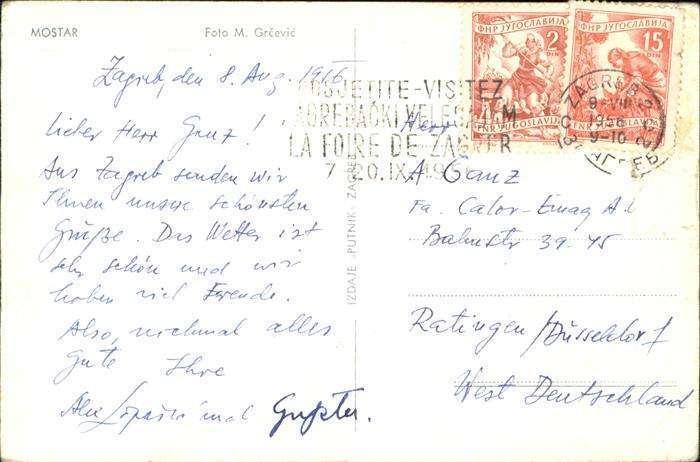 MOSTAR
Foto M. Grčević
ФНР ЈУГОСЛАВИЈА
2 DIN
FNR JUGOSLAVIJA
ФНР ЈУГОСЛАВИЈА
15 DIN
FNR JUGOSLAVIJA
POSJETITE-VISITEZ
ZAGREBAČKI VELESAJAM
LA FOIRE DE ZAGREB
7 20.IX.19
ZAGREB 2
9-VIII
1956
9-10
ЗАГРЕБ 2
Zagreb, den 8. Aug. 1956
Lieber Herr Ganz!
Aus Zagreb senden wir
Ihnen unsere schönsten
Grüße. Das Wetter ist
sehr schön und wir
haben viel Freude.
Also, nochmal alles
gute Ihre
und
IZDAJE „PUTNIK" ZAGREB
Herr
A Ganz
Fa. Calor-Emag A.G
Bahnstr 39-45
Ratingen/Düsseldorf
West Deutschland